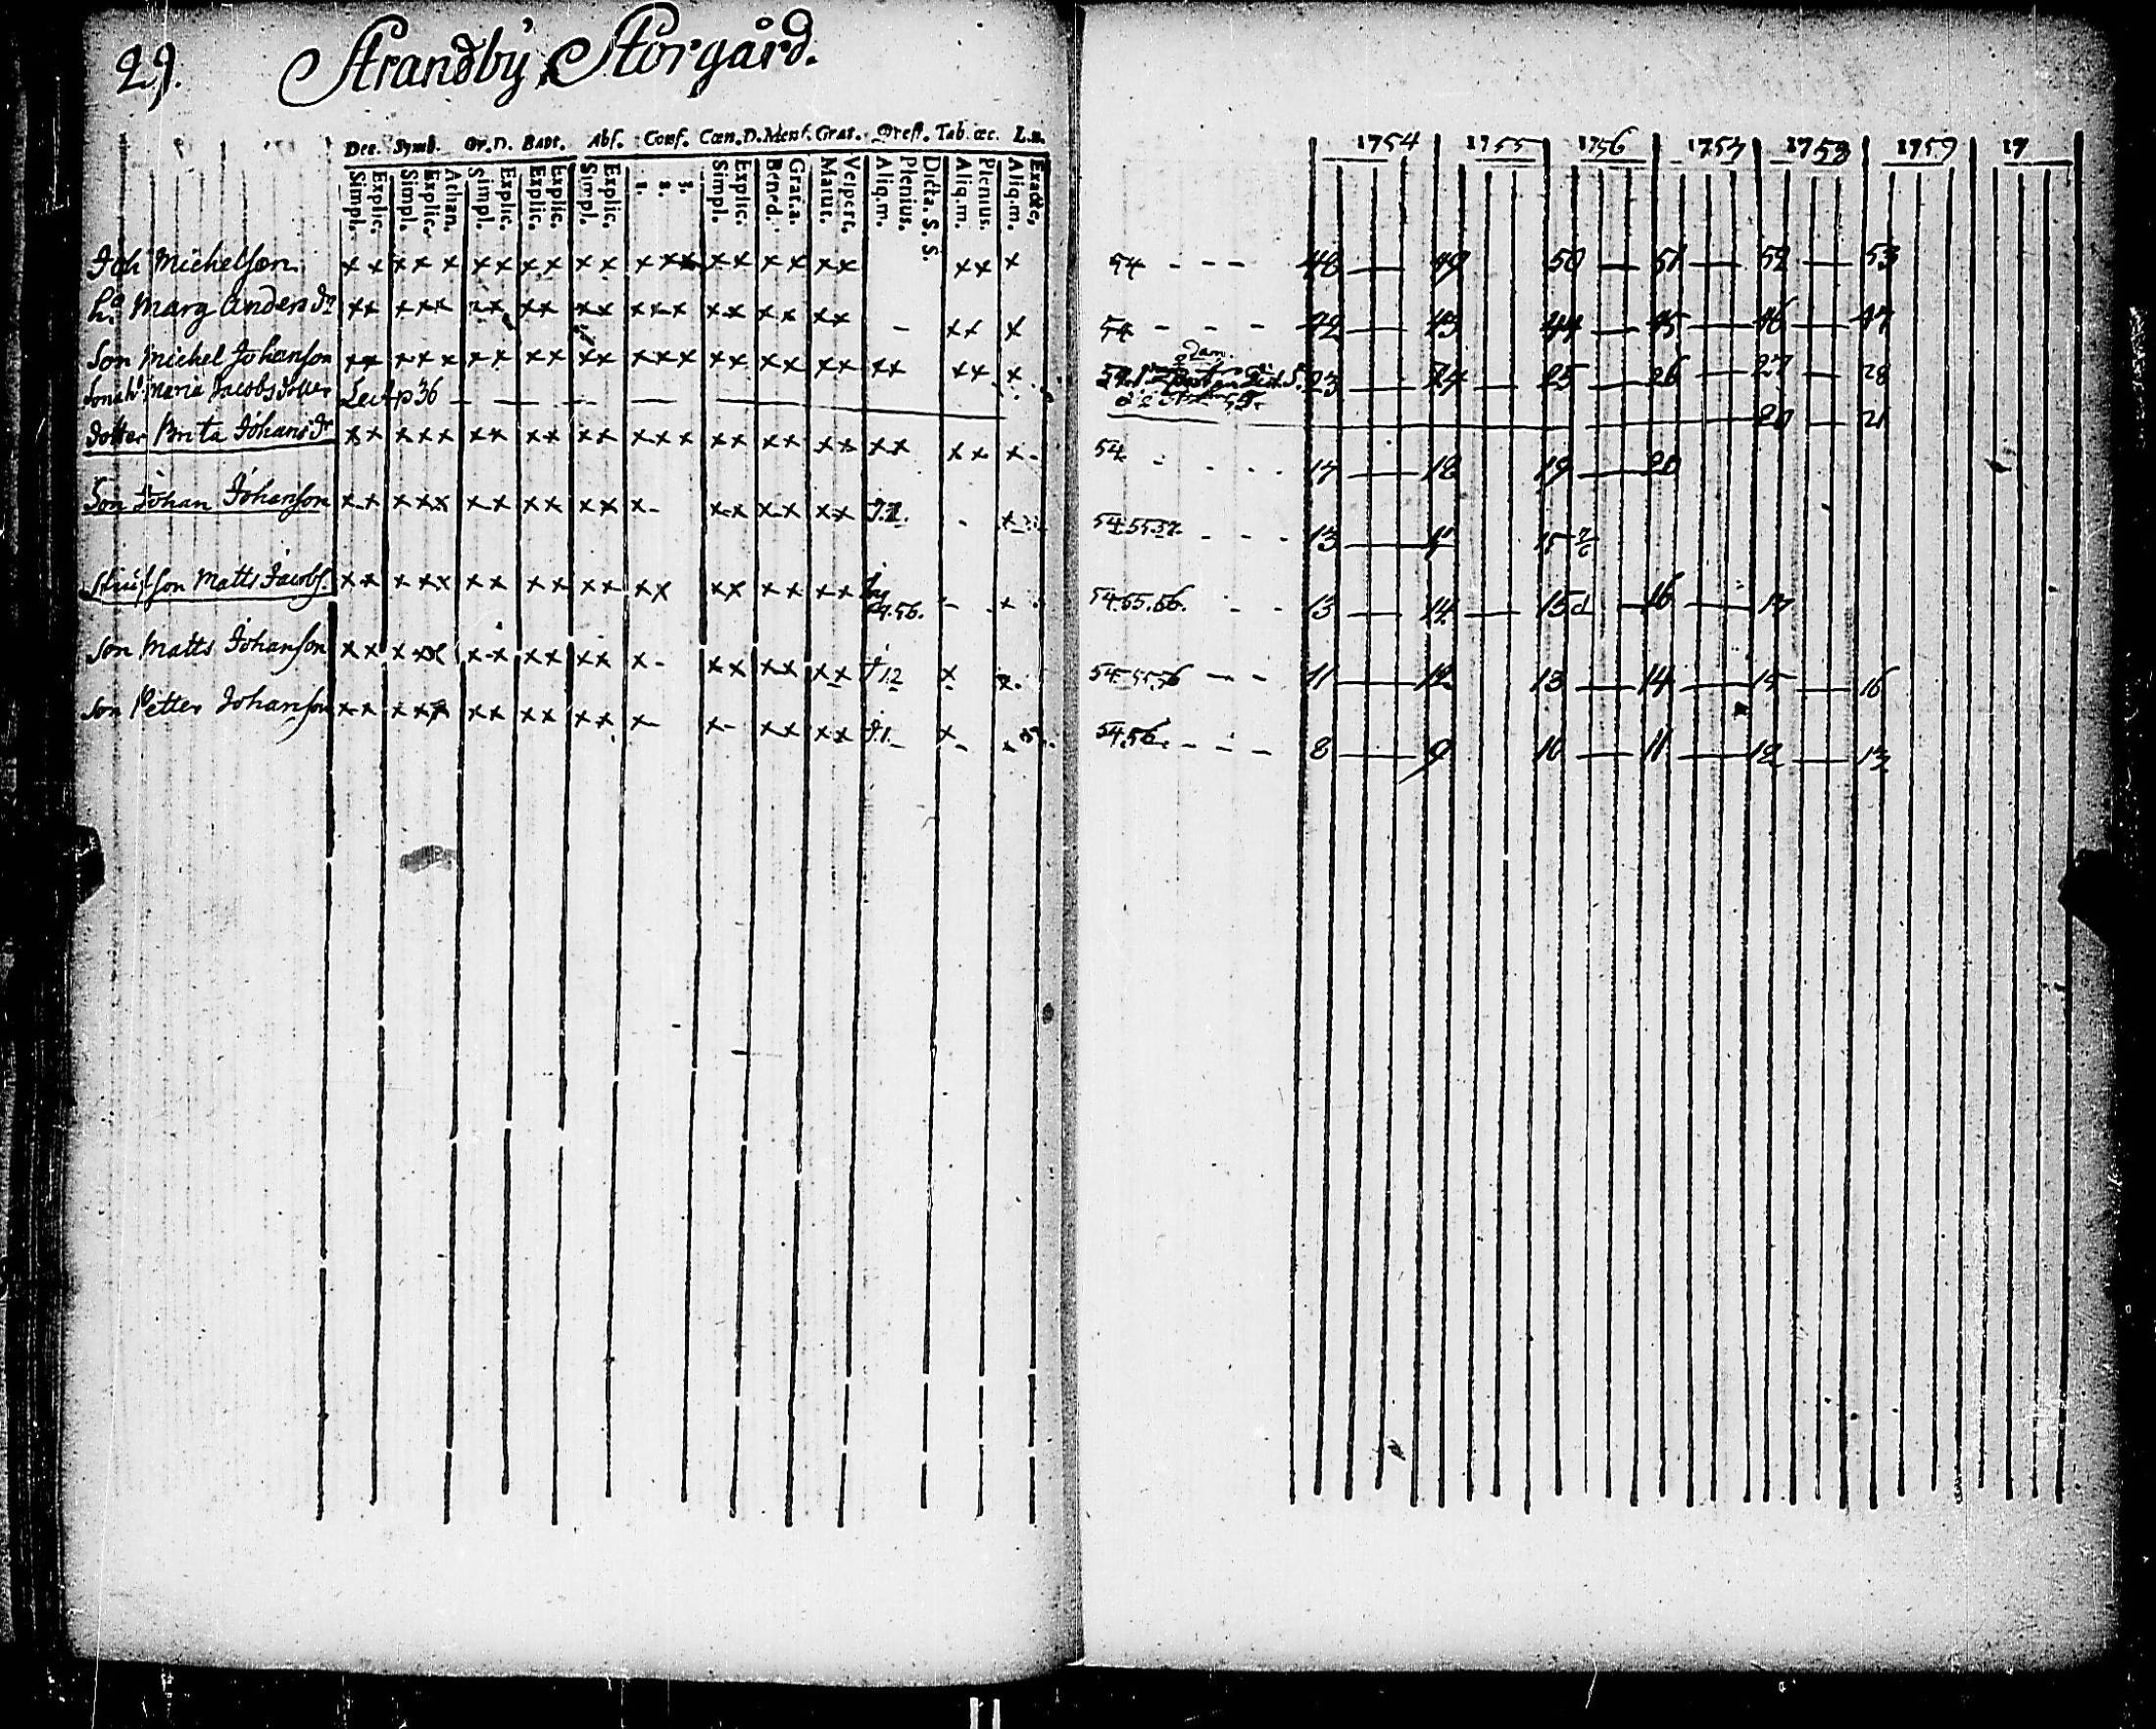 29. Strandby Storgård.
Dec. Symb. Or.D. Bapt. Abs. Conf. Cœn.D. Mens. Grat. Qvest. Tab. œc. L.n.
Simpl. Explic. Simpl. Explic. Athan. Simpl. Explic. Explic. Explic. Simpl. Explic. 1. 2. 3. Simpl. Explic. Bened. Grat.a. Matut. Vespert. Aliq.m. Plenius. Dicta. S. S. Aliq.m. Plenius. Aliq.m. Exacte.
1754 1755 1756 1757 1758 1759 17
Joh Michelson x x x x x x x x x x x x x x x x x x x x x x x 54 - - - 48 — 49 50 — 51 — 52 — 53
h.a Marg Anders dr x x x x x x x x x x x x x x x x x x x - x x x 54 - - - 42 — 43 44 — 45 — 46 — 47
Son Michel Johanson x x x x x x x x x x x x x x x x x x x x x x x x 23 — 24 — 25 — 26 — 27 — 28
Sonah. Maria Jacobsdotter Lect p 36 — — — 20 — 21
dotter Brita Johans dr x x x x x x x x x x x x x x x x x x x x x x x x - 54 - - - - 17 — 18 19 — 20
Son Johan Johanson x x x x x x x x x x x x - x x x x x x - x 54.55.57. - - - 13 — 15
Son Matts Jacobs. x x x x x x x x x x x x x x x x x x x 54.56. - x 54.55.56. - - 13 — 14 — 15 — 16 — 17
Son Matts Johanson x x x x x x x x x x x x - x x x x x x x x. 54.55.56 - - - 11 — 12 13 — 14 — 15 — 16
Son Petter Johanson x x x x x x x x x x x x - x - x x x x x x 54.56. - - - 8 — 9 10 — 11 — 12 — 13